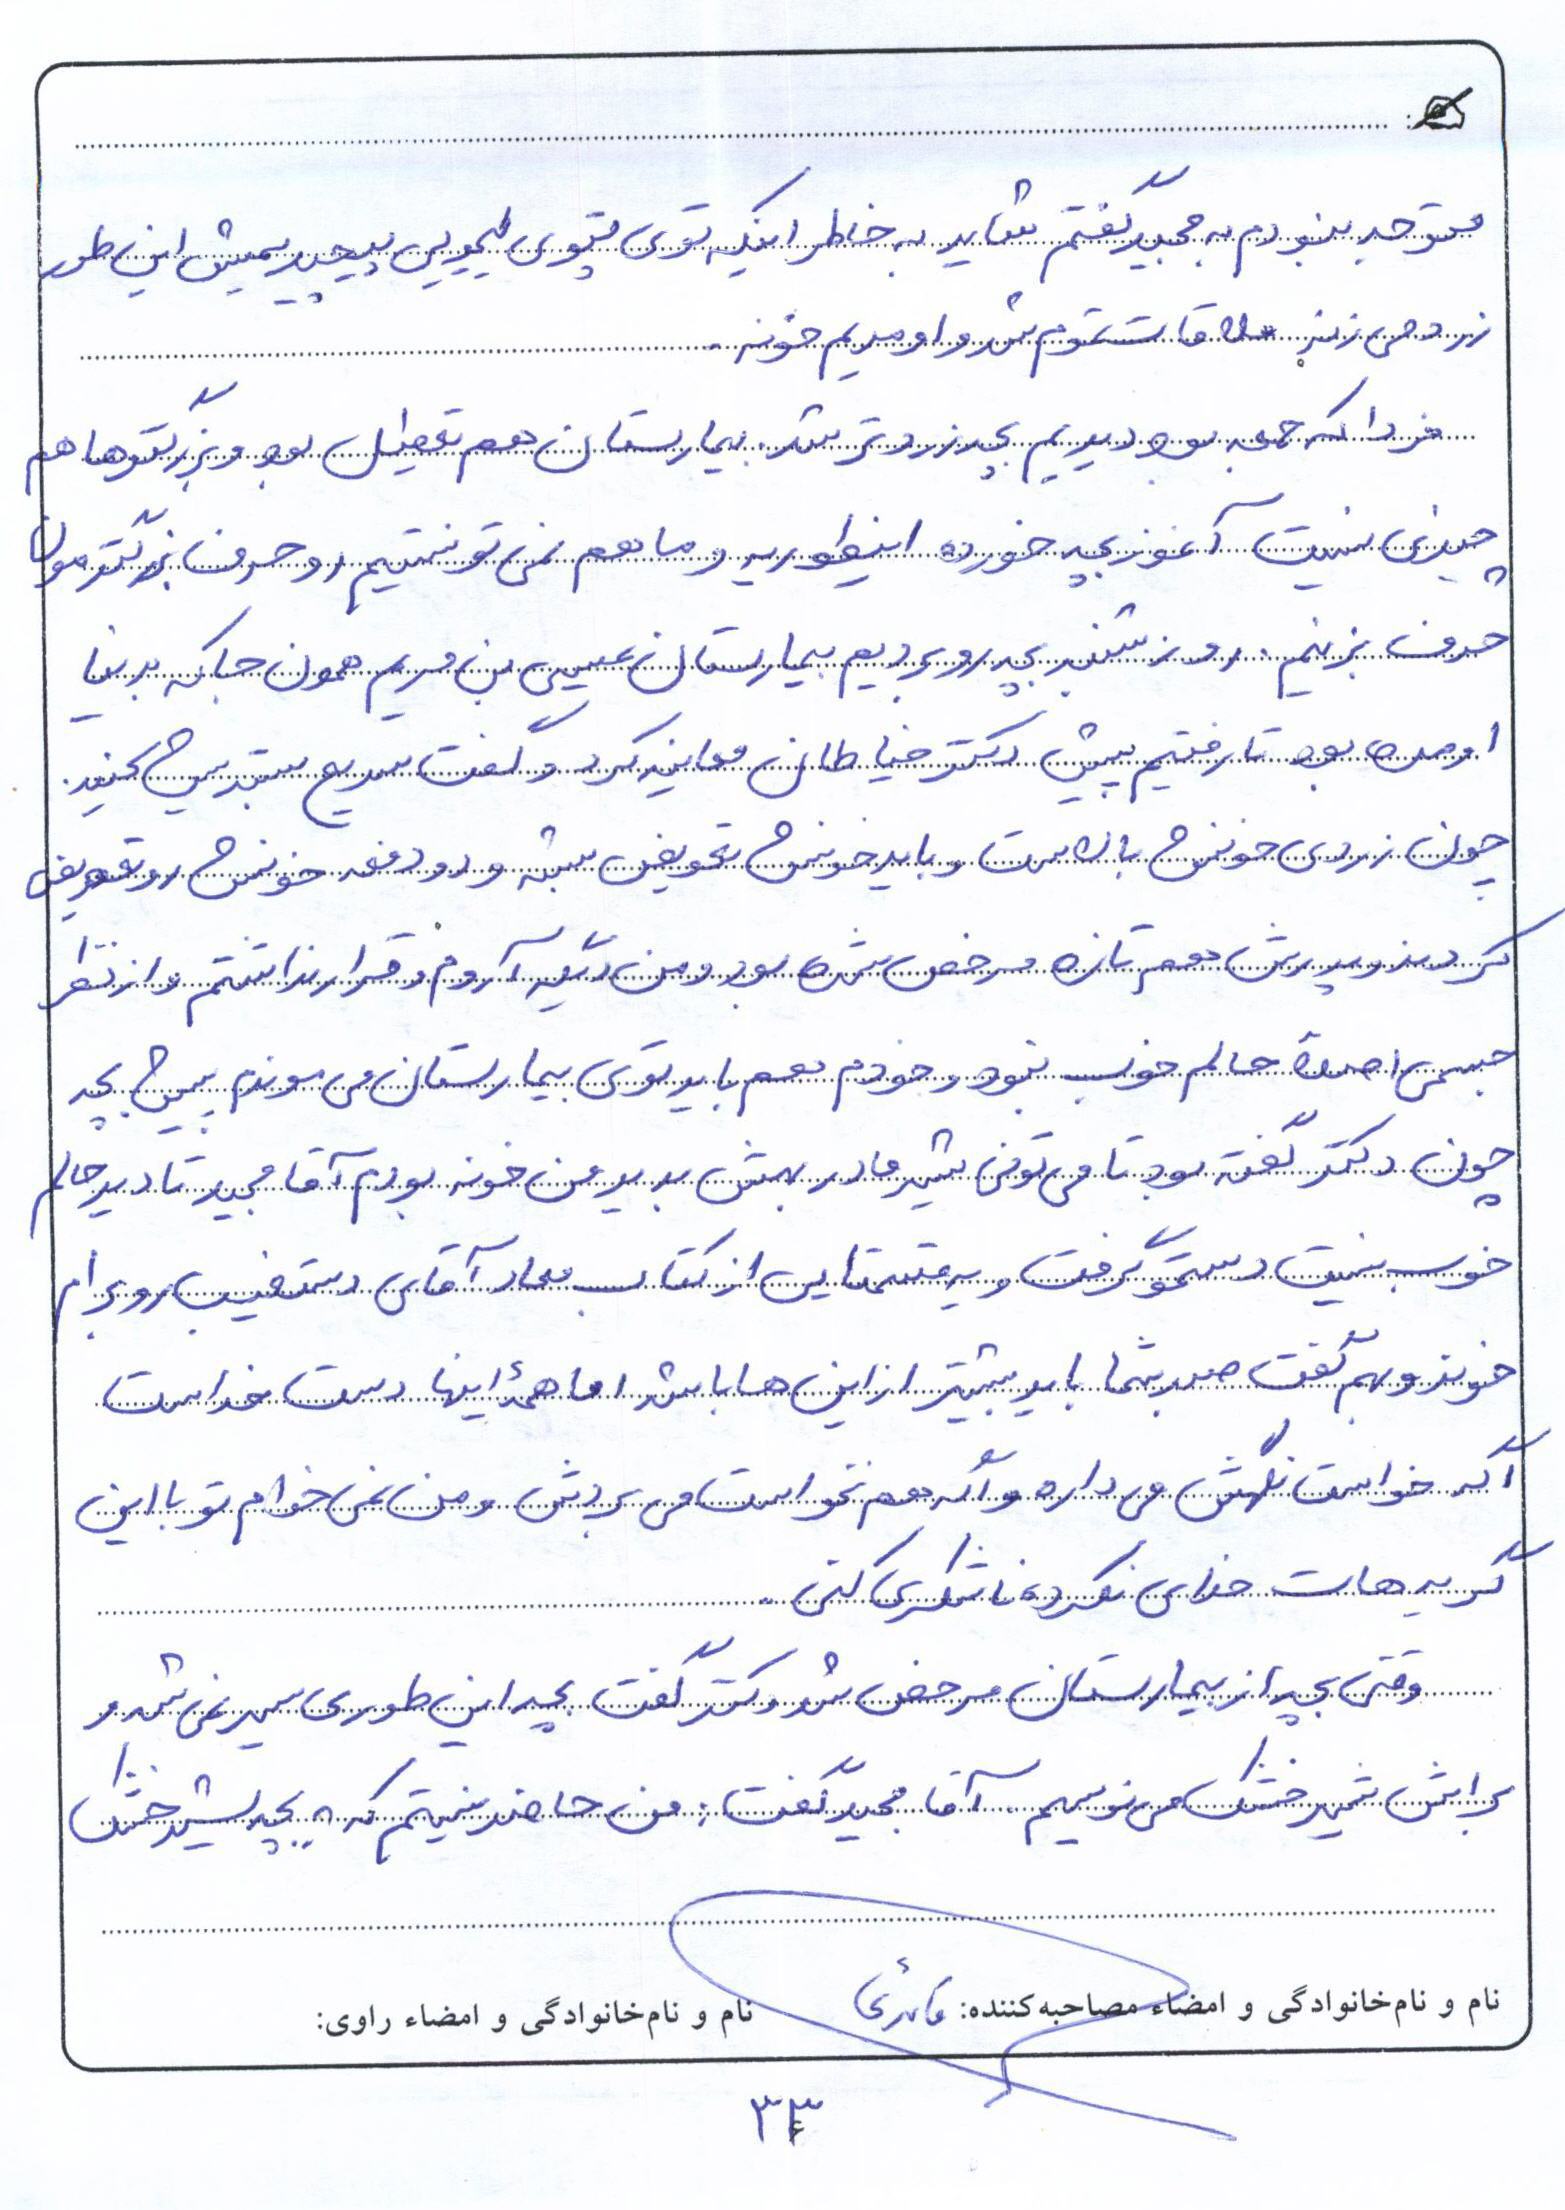 متوجه نبودم به مجید گفتم شاید به خاطر اینکه توی پتوی لیمویی پیچیدیمیش این طور
زرد می زنه ملاقات تموم شد و اومدیم خونه.
فردا که جمعه بود دیدیم بچه زردتر شد. بیمارستان هم تعطیل بود و بزرگترها هم
چیزی نیست آغوز بچه خورده اینطوریه و ما هم نمی تونستیم رو حرف بزرگترمون
حرف بزنیم. روز شنبه بچه رو بردیم بیمارستان عیسی بن مریم همون جا که به دنیا
اومده بود تا رفتیم پیش دکتر خیاطان معاینه کرد و گفت سریع بستریش کنید.
چون زردی خونش بالاست و باید خونش تعویض بشه و دو دفعه خونش رو تعویض
کردند و پدرش هم تازه مرخص شده بود و من دیگه آروم و قرار نداشتم و از نظر
جسمی اصلاً حالم خوب نبود و خودم هم باید توی بیمارستان می موندم پیش بچه
چون دکتر گفته بود تا می تونی شیر مادر بهش بدید من خونه بودم آقا مجید تا دید حالم
خوب نیست دستمو گرفت و یه قسمتایی از کتاب معاد آقای دستغیب رو برام
خوند و بهم گفت صبر شما باید بیشتر از این ها باشد اما همۀ اینها دست خداست
اگه خواست نگهش می داره و اگه هم نخواست می بردش و من نمی خوام تو با این
گریه هات خدای نکرده ناشکری کنی.
وقتی بچه از بیمارستان مرخص شد دکتر گفت بچه این طوری سیر نمی شد و
برایش شیر خشک می نویسم. آقا مجید گفت: من حاضر نیستم که بچه شیر خشک
نام و نام‌خانوادگی و امضاء مصاحبه‌کننده: نام و نام‌خانوادگی و امضاء راوی:
۳۳